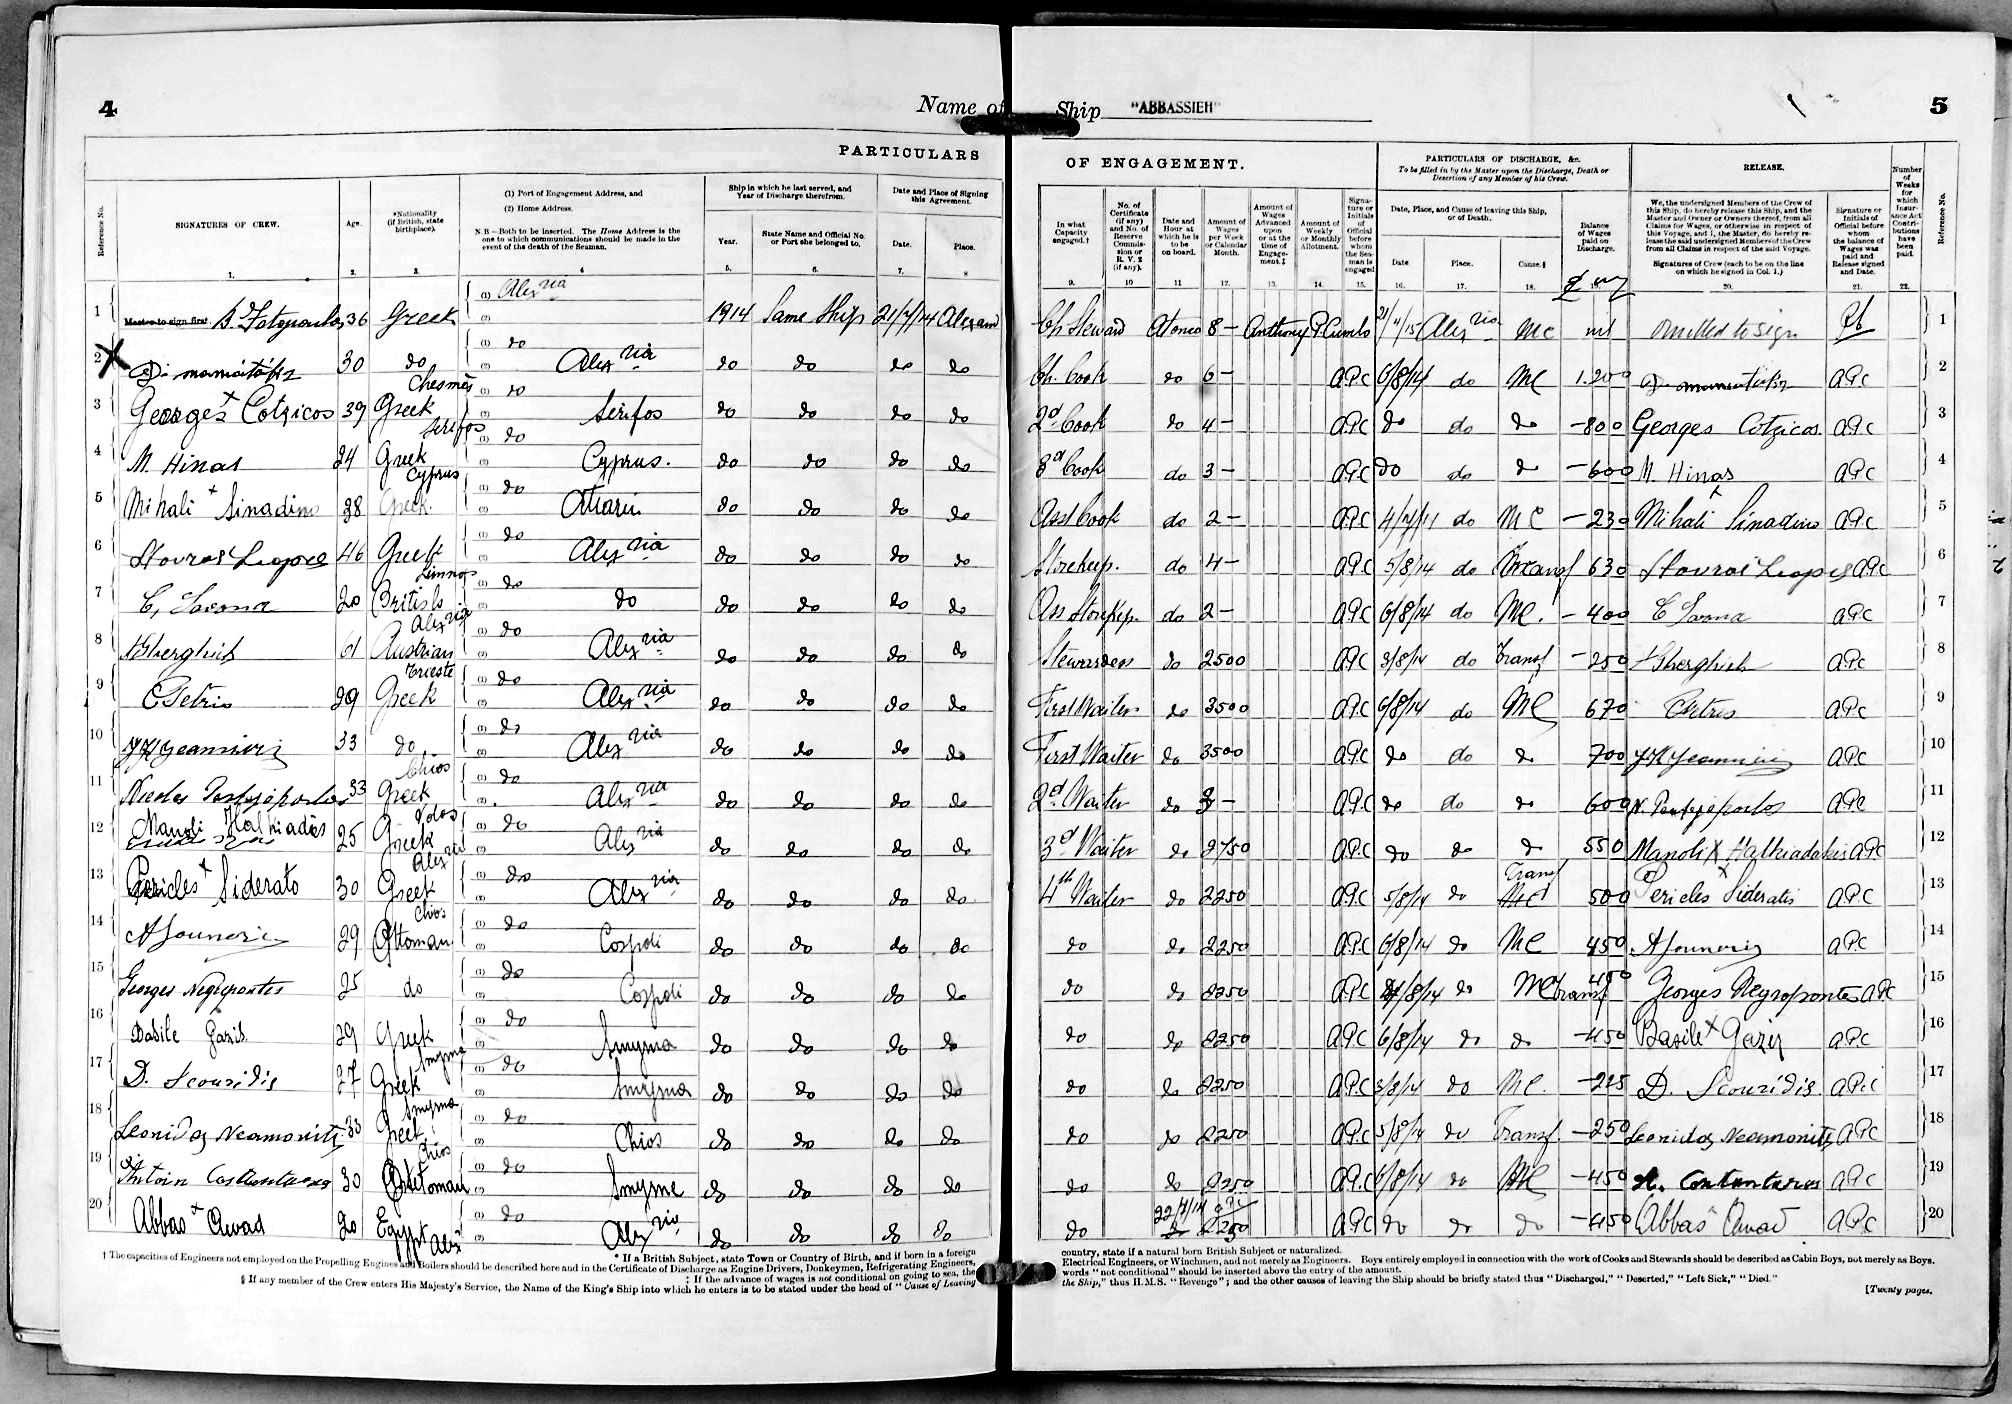 4
Name of Ship "ABBASSIEH"
5
PARTICULARS OF ENGAGEMENT.
PARTICULARS OF DISCHARGE, &c.
To be filled in by the Master upon the Discharge, Death or Desertion of any Member of his Crew.
RELEASE.
Reference No.
SIGNATURES OF CREW.
Age.
*Nationality (if British, state birthplace).
(1) Port of Engagement Address, and
(2) Home Address.
N.B—Both to be inserted. The Home Address is the one to which communications should be made in the event of the death of the Seaman.
Ship in which he last served, and Year of Discharge therefrom.
Year.
State Name and Official No. or Port she belonged to.
Date and Place of Signing this Agreement.
Date.
Place.
In what Capacity engaged.†
No. of Certificate (if any) and No. of Reserve Commission or R.V.2 (if any).
Date and Hour at which he is to be on board.
Amount of Wages per Week or Calendar Month.
Amount of Wages Advanced upon or at the time of Engagement.‡
Amount of Weekly or Monthly Allotment.
Signature or Initials of Official before whom the Seaman is engaged
Date, Place, and Cause of leaving this Ship, or of Death.
Date
Place.
Cause.§
Balance of Wages paid on Discharge.
We, the undersigned Members of the Crew of this Ship, do hereby release this Ship, and the Master and Owner or Owners thereof, from all Claims for Wages, or otherwise in respect of this Voyage, and I, the Master, do hereby release the said undersigned Members of the Crew from all Claims in respect of the said Voyage.
Signatures of Crew (each to be on the line on which he signed in Col. 1.)
Signature or Initials of Official before whom the balance of Wages was paid and Release signed and Date.
Number of Weeks for which Insurance Act Contributions have been paid.
Reference No.
1. 2. 3. 4 5. 6. 7. 8 9. 10 11 12. 13. 14. 15. 16. 17. 18. 20. 21. 22.
1 Master to sign first 36 Greek (1) Alexria (2) 1914 Same Ship 21/7/14 Alexand Ch Steward At once 8 - Anthony P. Cumbo 21/4/15 Alexria MC nil omitted to sign 1
2 30 do (1) do (2) Alexria do do do do Ch. Cook do 6 - APC 6/8/14 do MC 1.200 APC 2
Chesmes
3 Georges x Cotzicos 39 Greek (1) do (2) Serifos do do do do 2d Cook do 4 - APC do do do - 800 Georges Cotzicos APC 3
Serifos
4 M. Hinas 24 Greek (1) do (2) Cyprus. do do do do 3d Cook do 3 - APC do do do - 600 M. Hinas APC 4
Cyprus
5 Mihali x Sinadino 38 Greek. (1) do (2) do do do do Asst Cook do 2 - APC do MC - 230 Mihali x Sinadino APC 5
6 46 Greek (1) do (2) Alexria do do do do Storekeep. do 4 - APC 5/8/14 do Transf 630 APC 6
Limnos
7 20 British (1) do (2) do do do do do Ass Storekep. do 2 - APC 6/8/14 do MC. - 400 APC 7
Alexria
8 61 Austrian (1) do (2) Alexria do do do do Stewardess do 2500 APC 3/8/14 do Transf - 250 APC 8
Trieste
9 C Petris 29 Greek (1) do (2) Alexria do do do do First Waiter do 3500 APC 6/8/14 do MC 670 APC 9
10 33 do (1) do (2) Alexria do do do do First Waiter do 3500 APC do do do 700 APC 10
Chios
11 Nicolas 33 Greek (1) do (2) Alexria do do do do 2d Waiter do 3 - APC do do do 600 APC 11
Volos
12 Manoli Halkiadakis 25 Greek (1) do (2) Alexria do do do do 3d Waiter do 2750 APC do do do 550 Manoli X Halkiadakis APC 12
Alexria
13 Pericles x Siderato 30 Greek (1) do (2) Alexria do do do do 4th Waiter do 2250 APC 5/8/14 do Transf 500 Pericles x Sideratis APC 13
Chios
14 29 Ottoman (1) do (2) Cospoli do do do do do do 2250 APC 6/8/14 do MC 450 APC 14
15 Georges Negropontes 25 do (1) do (2) Cospoli do do do do do do 2250 APC /8/14 do MC Transf 450 Georges Negropontes APC 15
16 Basile Gazis 29 Greek (1) do (2) Smyrna do do do do do do 2250 APC 6/8/14 do do - 450 Basile x Gazis APC 16
Smyrna
17 D. Scouridis 27 Greek (1) do (2) Smyrna do do do do do do 2250 APC 3/8/14 do MC. - 225 D. Scouridis APC 17
Smyrna
18 Leonidas Neamonitis 33 Greek (1) do (2) Chios do do do do do do 2250 APC 5/8/14 do Transf. - 250 Leonidas Neamonitis APC 18
Chios
19 30 Ottoman (1) do (2) Smyrne do do do do do do 2250 APC 6/8/14 do MC - 450 APC 19
20 Abbas x Awad 20 Egypt Alex (1) do (2) Alexria do do do do do 22/7/14 2250 APC do do do - 450 Abbas x Awad APC 20
* If a British Subject, state Town or Country of Birth, and if born in a foreign country, state if a natural born British Subject or naturalized.
† The capacities of Engineers not employed on the Propelling Engines and Boilers should be described here and in the Certificate of Discharge as Engine Drivers, Donkeymen, Refrigerating Engineers, Electrical Engineers, or Winchmen, and not merely as Engineers. Boys entirely employed in connection with the work of Cooks and Stewards should be described as Cabin Boys, not merely as Boys.
‡ If the advance of wages is not conditional on going to sea, the words "not conditional" should be inserted above the entry of the amount.
§ If any member of the Crew enters His Majesty's Service, the Name of the King's Ship into which he enters is to be stated under the head of "Cause of Leaving the Ship," thus H.M.S. "Revenge"; and the other causes of leaving the Ship should be briefly stated thus "Discharged," "Deserted," "Left Sick," "Died."
[Twenty pages.